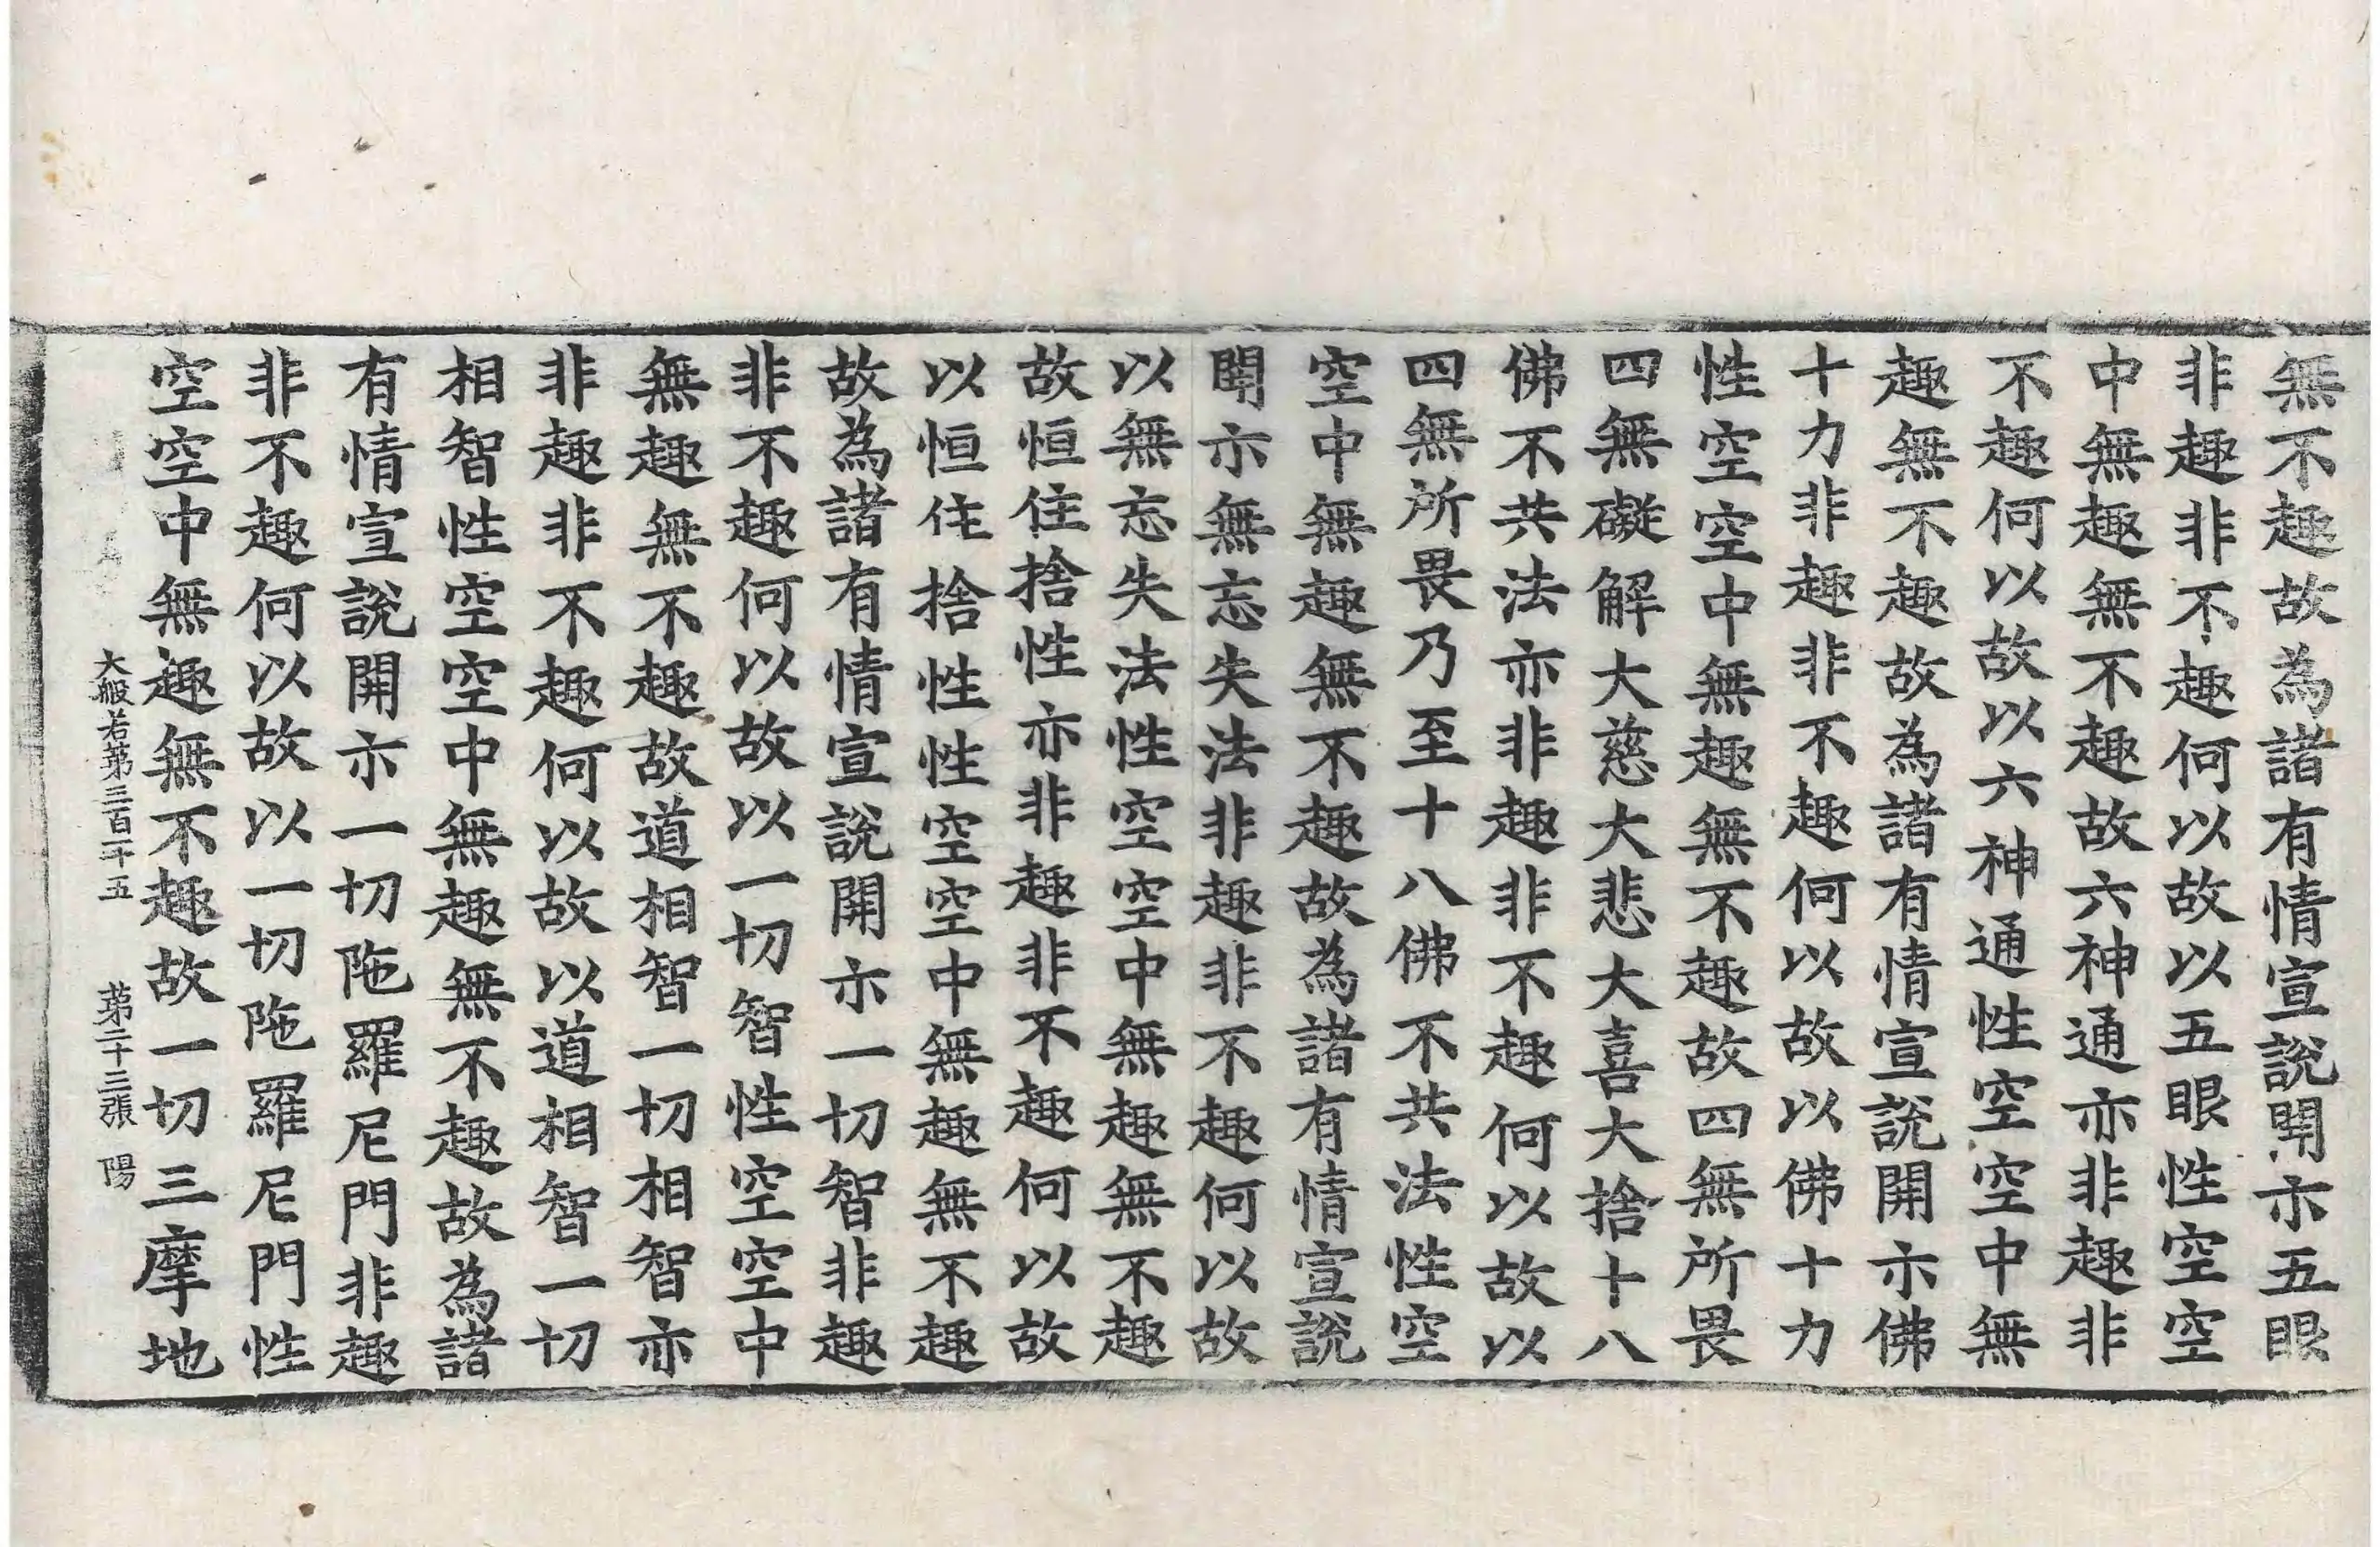 無不趣故為諸有情宣說開示五眼
非趣非不趣何以故以五眼性空空
中無趣無不趣故六神通亦非趣非
不趣何以故以六神通性空空中無
趣無不趣故為諸有情宣說開示佛
十力非趣非不趣何以故以佛十力
性空空中無趣無不趣故四無所畏
四無礙解大慈大悲大喜大捨十八
佛不共法亦非趣非不趣何以故以
四無所畏乃至十八佛不共法性空
空中無趣無不趣故為諸有情宣說
開示無忘失法非趣非不趣何以故
以無忘失法性空空中無趣無不趣
故恒住捨性亦非趣非不趣何以故
以恒住捨性性空空中無趣無不趣
故為諸有情宣說開示一切智非趣
非不趣何以故以一切智性空空中
無趣無不趣故道相智一切相智亦
非趣非不趣何以故以道相智一切
相智性空空中無趣無不趣故為諸
有情宣說開示一切陁羅尼門非趣
非不趣何以故以一切陁羅尼門性
空空中無趣無不趣故一切三摩地
大般若第三百二十五 第二十三張 陽